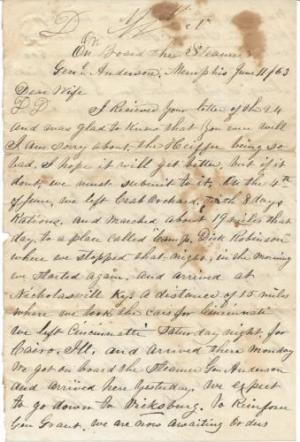 On Board the Steamer
Genl. Anderson, Memphis June 11/63
Dear Wife
I Recieved your letter of the 24
and was glad to know that you were well
I am Sorry about the Heiffer being so
bad, I hope it will get better, but if it
dont, we must submit to it, On the 4th
of June, we left Crab Orchard, with 8 days
Rations, and Marched about 19 miles that
day, to a place called Camp Dick Robinson
where we stopped that night, in the morning
we started again, and arrived at
Nicholasvill Ky, a distance of 15 miles
where we took the cars for Cincinnati
We left Cincinnatti Saturday night, for
Cairo, Ill. and arrived there Monday
We got on board the Steamer Gen Anderson
and arrived here Yesterday, We expect
to go down to Vicksburg, To Reinforce
Gen Grant, We are now awaiting Orders